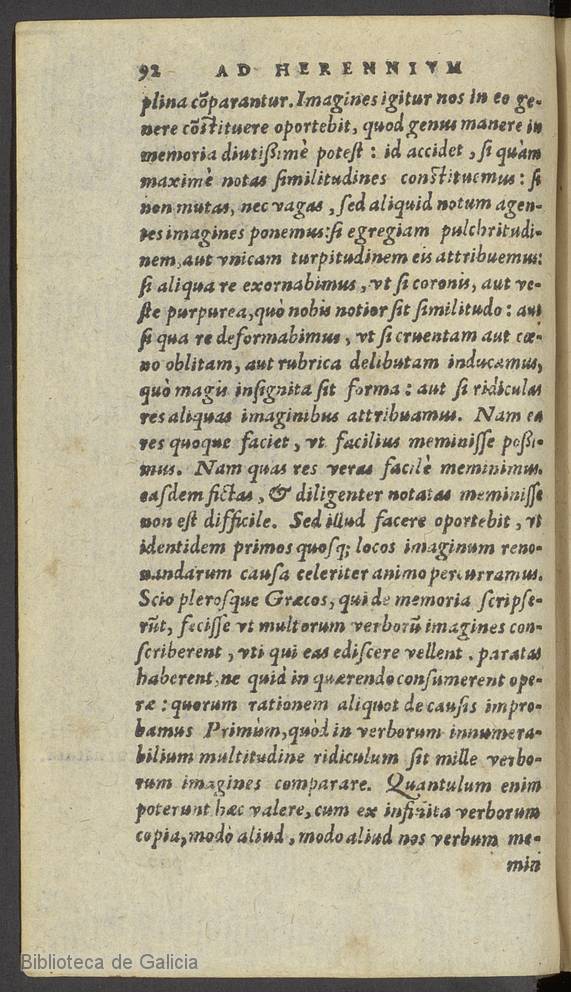 92 AD HERENNIVM
plina cõparantur. Imagines igitur nos in eo ge-
nere cõſtituere oportebit, quod genus manere in
memoria diutißimè poteſt : id accidet , ſi quàm
maximè notas ſimilitudines conſtituemus : ſi
non mutas, nec vagas , ſed aliquid notum agen-
tes imagines ponemus:ſi egregiam pulchritudi-
nem,aut vnicam turpitudinem eis attribuemus:
ſi aliqua re exornabimus , vt ſi coronis, aut ve-
ſte purpurea,quò nobis notior ſit ſimilitudo : aut
ſi qua re deformabimus , vt ſi cruentam aut cœ-
no oblitam, aut rubrica delibutam inducamus,
quò magis inſignita ſit forma : aut ſi ridiculas
res aliquas imaginibus attribuamus. Nam ea
res quoque faciet , vt facilius meminiſſe poßi-
mus. Nam quas res veras facilè meminimus.
eaſdem fictas , & diligenter notatas meminiſſe
non eſt difficile. Sed illud facere oportebit , vt
identidem primos quoſq; locos imaginum reno-
uandarum cauſa celeriter animo percurramus.
Scio pleroſque Græcos, qui de memoria ſcripſe-
rũt, feciſſe vt multorum verborũ imagines con-
ſcriberent , vti qui eas ediſcere vellent . paratas
haberent,ne quid in quærendo conſumerent ope-
ræ : quorum rationem aliquot de cauſis impro-
bamus Primùm,quòd in verborum innumera-
bilium multitudine ridiculum ſit mille verbo-
rum imagines comparare. Quantulum enim
poterunt hæc valere, cum ex infinita verborum
copia,modò aliud , modo aliud nos verbum me-
min
Biblioteca de Galicia